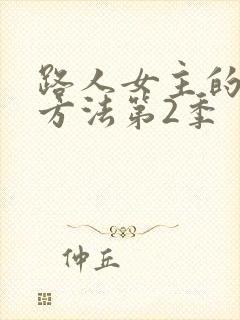 路人女主的
方法第2季
仲丘